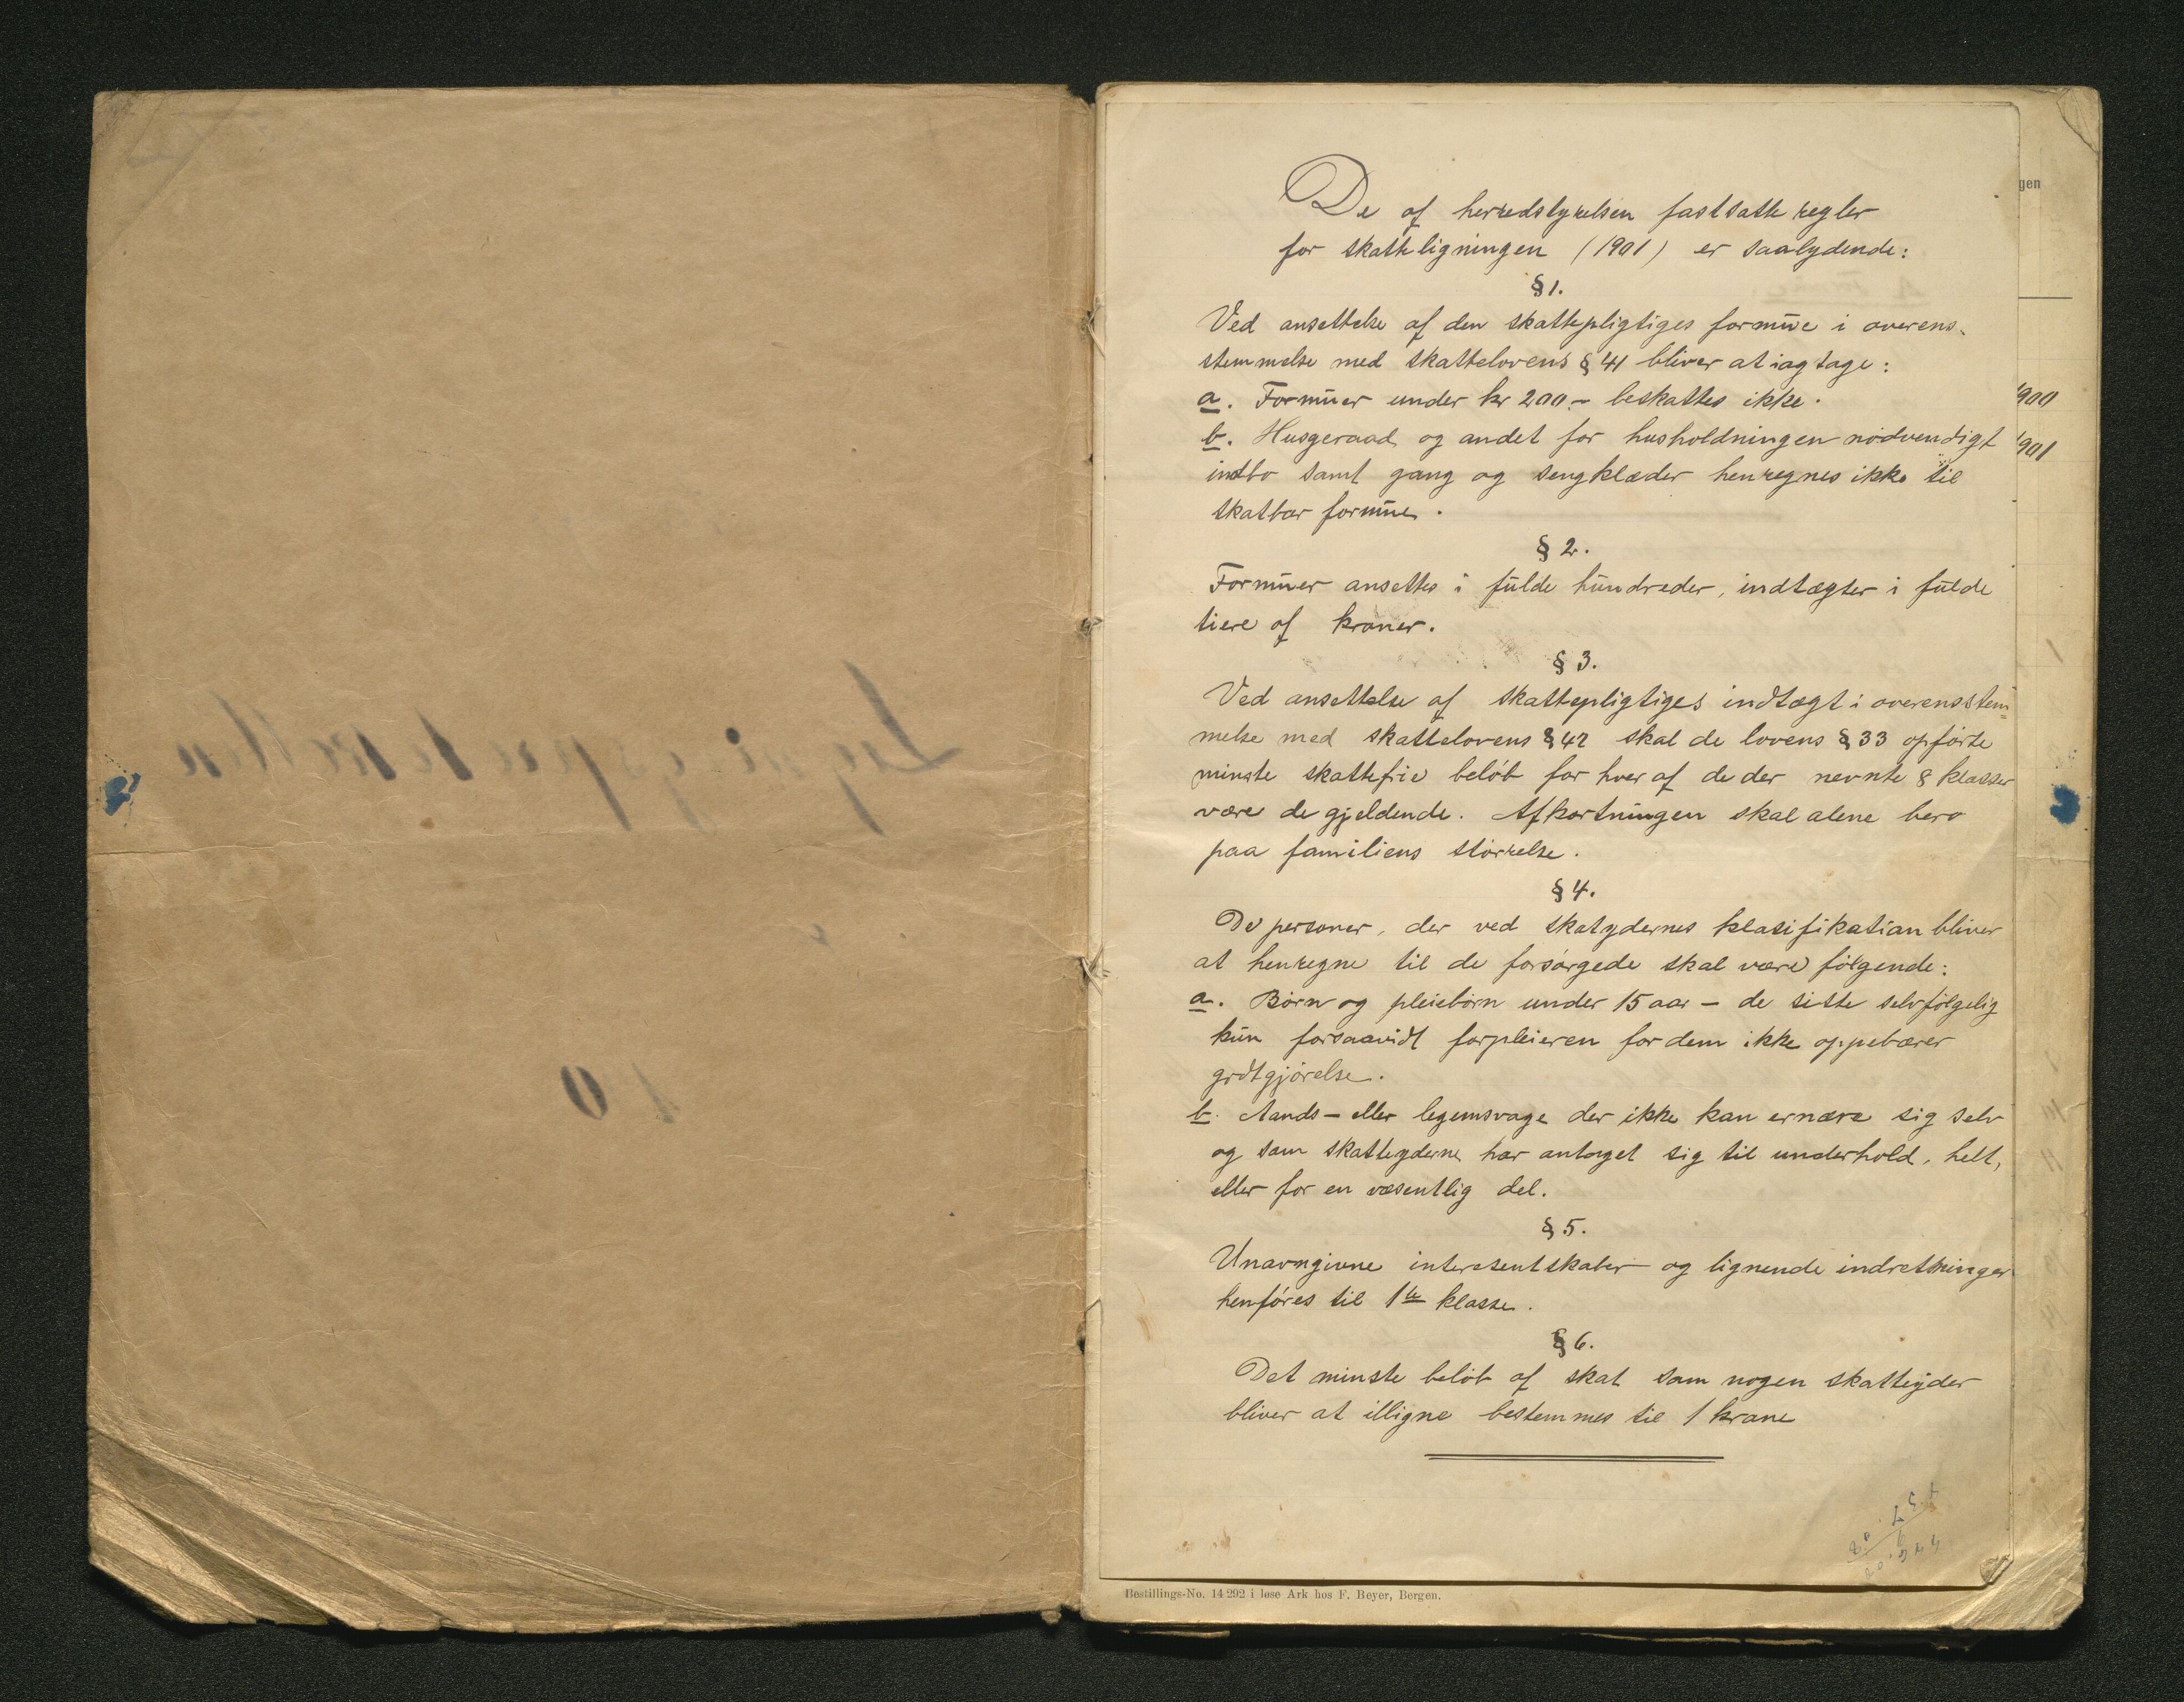 De af herredstyrelsen fastsatte regler
for skatteligningen (1901) er saalydende:
§ 1.
Ved ansettelse af den skattepligtiges formue i overens-
stemmelse med skattelovens § 41 bliver at iagtage:
a. Formuer under kr 200.- beskattes ikke.
b. Husgeraad og andet for husholdningen nødvendigt
indbo samt gang og sengklæder henregnes ikke til
skatbar formue.
§ 2.
Formuer ansettes i fulde hundreder, indtægter i fulde
tiere af kroner.
§ 3.
Ved ansettelse af skattepligtiges indtægt i overensstem=
melse med skattelovens § 42 skal de lovens § 33 opførte
minste skattefrie beløb for hver af de der nevnte 8 klasser
være de gjeldende. Afkortningen skal alene bero
paa familiens størrelse.
§ 4.
De personer, der ved skatydernes klasifikation bliver
at henregne til de forsørgede skal være følgende:
a. Børn og pleiebørn under 15 aar - de sidste selvfølgelig
kun forsaavidt forpleieren for dem ikke oppebærer
godtgjørelse.
b. Aands- eller legemsvage der ikke kan ernære sig selv
og som skatteyderne har antaget sig til underhold, helt,
eller for en væsentlig del.
§ 5.
Unavngivne interesentskaber og lignende indretninger
henføres til 1ste klasse.
§ 6.
Det minste beløb af skat som nogen skatteyder
bliver at illigne bestemmes til 1 krone
Bestillings-No. 14 292 i løse Ark hos F. Beyer, Bergen.
gen
1900
1901